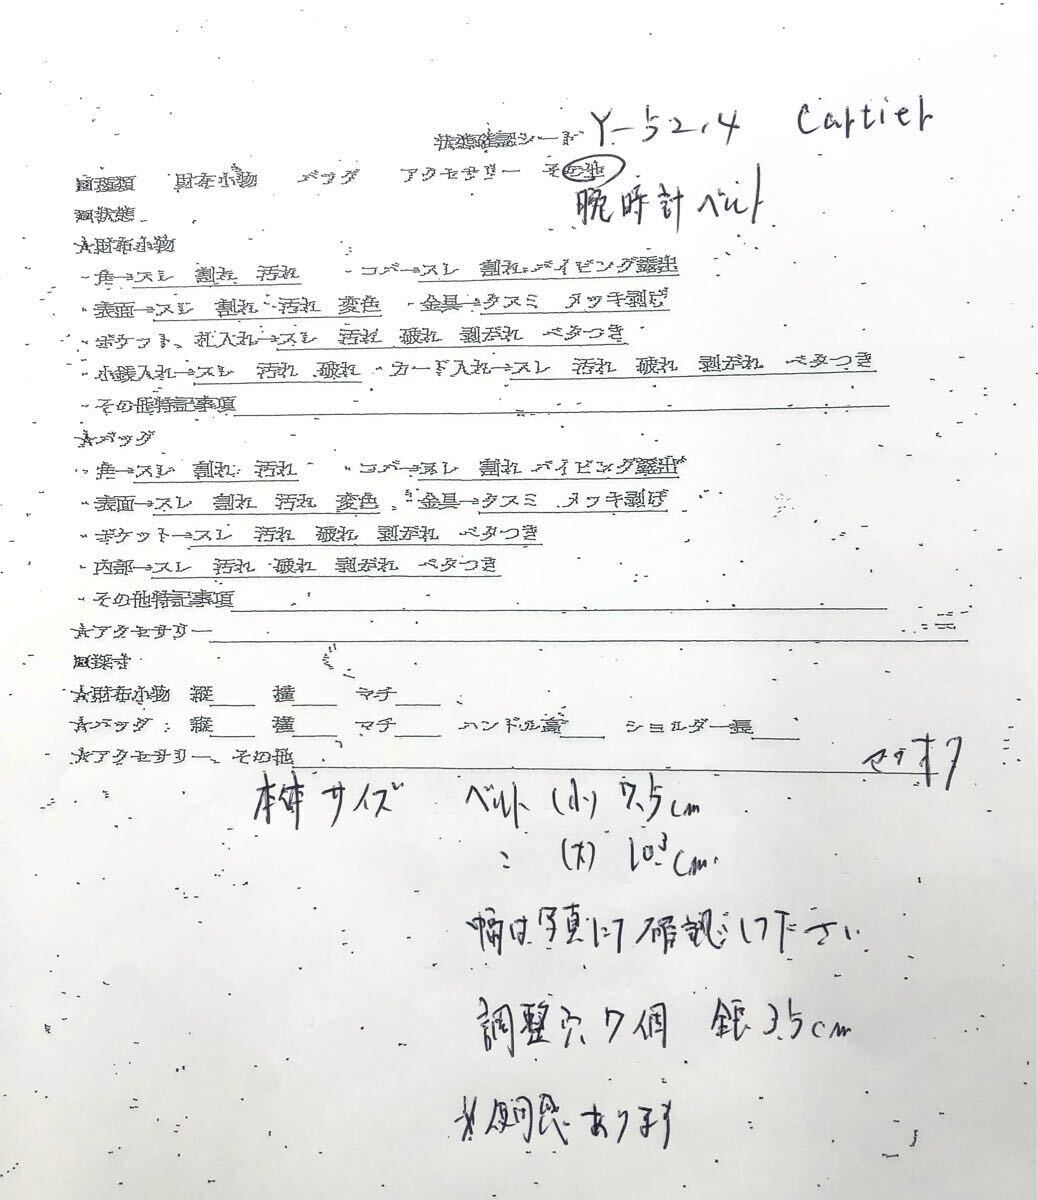 状態確認シート Y-52.4 Cartier
□種類 財布小物 バッグ アクセサリー その他
腕時計ベルト
□状態
★財布小物
・角→スレ 割れ 汚れ ・コバ→スレ 割れ パイピング露出
・表面→スレ 割れ 汚れ 変色 ・金具→クスミ メッキ剥げ
・ポケット、札入れ→スレ 汚れ 破れ 剥がれ ベタつき
・小銭入れ→スレ 汚れ 破れ ・カード入れ→スレ 汚れ 破れ 剥がれ ベタつき
・その他特記事項
★バッグ
・角→スレ 割れ 汚れ ・コバ→スレ 割れ パイピング露出
・表面→スレ 割れ 汚れ 変色 ・金具→クスミ メッキ剥げ
・ポケット→スレ 汚れ 破れ 剥がれ ベタつき
・内部→スレ 汚れ 破れ 剥がれ ベタつき
・その他特記事項
★アクセサリー
□採寸
★財布小物 縦 横 マチ
★バッグ: 縦 横 マチ ハンドル高 ショルダー長
★アクセサリー、その他
本体サイズ ベルト (小) 7.5cm
〃 (大) 10.3cm
幅は写真にて確認して下さい
調整穴 7個 全長 35cm
※使用感あります